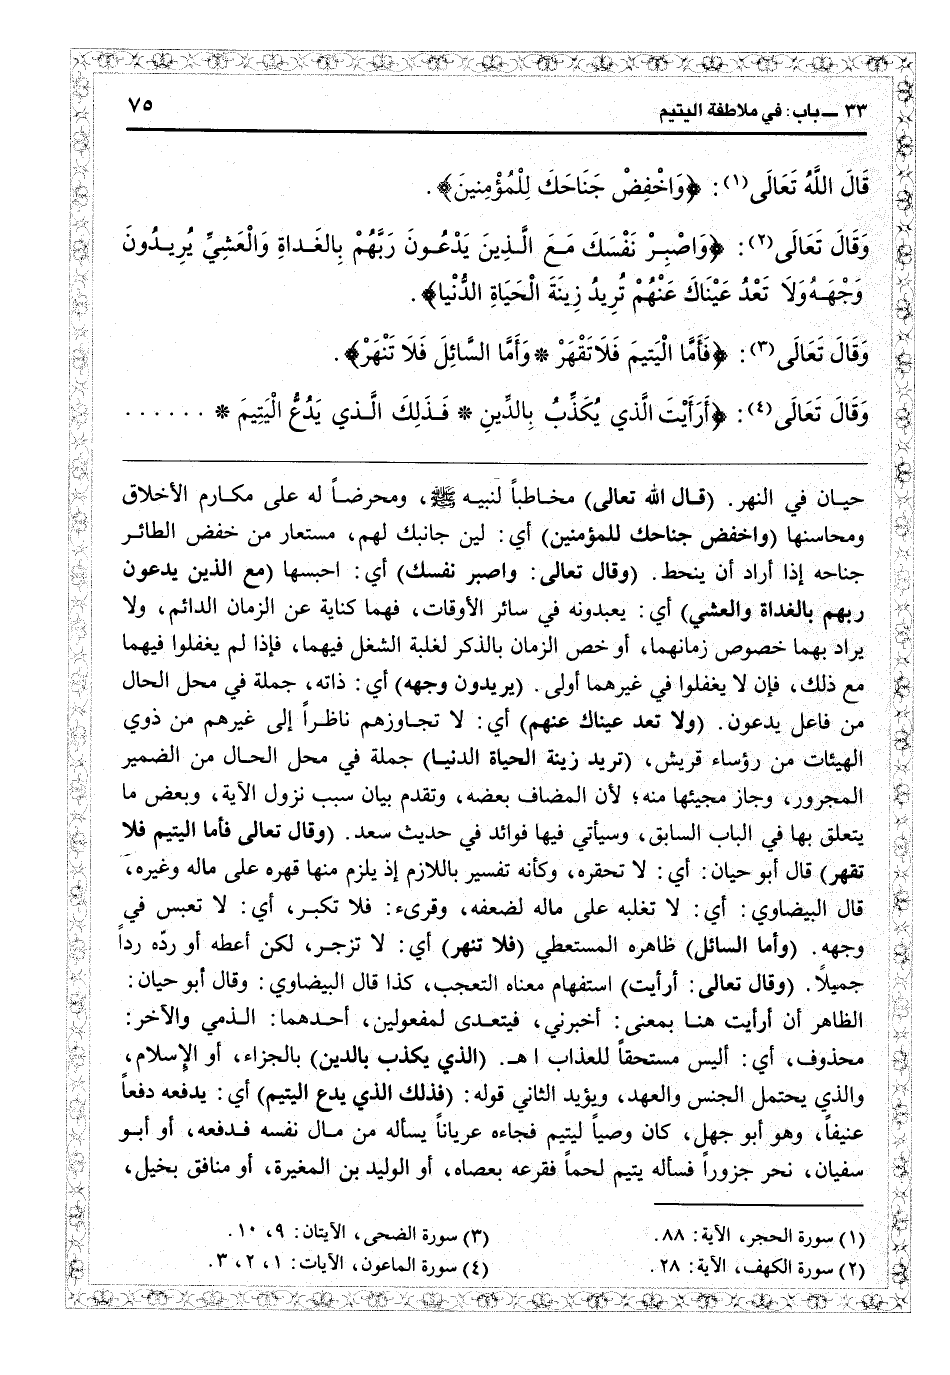 ٣٣ ــ باب: في ملاطفة اليتيم ٧٥
قَالَ اللَّهُ تَعَالَى(١): ﴿وَاخْفِضْ جَنَاحَكَ لِلْمُؤْمِنِينَ﴾.
وَقَالَ تَعَالَى(٢): ﴿وَاصْبِرْ نَفْسَكَ مَعَ الَّذِينَ يَدْعُونَ رَبَّهُمْ بِالغَداةِ وَالْعَشِيِّ يُرِيدُونَ
وَجْهَهُ وَلَا تَعْدُ عَيْنَاكَ عَنْهُمْ تُرِيدُ زِينَةَ الْحَيَاةِ الدُّنْيا﴾.
وَقَالَ تَعَالَى(٣): ﴿فَأَمَّا الْيَتِيمَ فَلَا تَقْهَرْ * وَأَمَّا السَّائِلَ فَلَا تَنْهَرْ﴾.
وَقَالَ تَعَالَى(٤): ﴿أَرَأَيْتَ الَّذي يُكَذِّبُ بِالدِّينِ * فَذَلِكَ الَّذي يَدُعُّ الْيَتِيمَ * ......
حيان في النهر. (قال الله تعالى) مخاطباً لنبيه ﷺ، ومحرضاً له على مكارم الأخلاق
ومحاسنها (واخفض جناحك للمؤمنين) أي: لين جانبك لهم، مستعار من خفض الطائر
جناحه إذا أراد أن ينحط. (وقال تعالى: واصبر نفسك) أي: احبسها (مع الذين يدعون
ربهم بالغداة والعشي) أي: يعبدونه في سائر الأوقات، فهما كناية عن الزمان الدائم، ولا
يراد بهما خصوص زمانهما، أو خص الزمان بالذكر لغلبة الشغل فيهما، فإذا لم يغفلوا فيهما
مع ذلك، فإن لا يغفلوا في غيرهما أولى. (يريدون وجهه) أي: ذاته، جملة في محل الحال
من فاعل يدعون. (ولا تعد عيناك عنهم) أي: لا تجاوزهم ناظراً إلى غيرهم من ذوي
الهيئات من رؤساء قريش، (تريد زينة الحياة الدنيا) جملة في محل الحال من الضمير
المجرور، وجاز مجيئها منه؛ لأن المضاف بعضه، وتقدم بيان سبب نزول الآية، وبعض ما
يتعلق بها في الباب السابق، وسيأتي فيها فوائد في حديث سعد. (وقال تعالى فأما اليتيم فلا
تقهر) قال أبو حيان: أي: لا تحقره، وكأنه تفسير باللازم إذ يلزم منها قهره على ماله وغيره،
قال البيضاوي: أي: لا تغلبه على ماله لضعفه، وقرىء: فلا تكبر، أي: لا تعبس في
وجهه. (وأما السائل) ظاهره المستعطي (فلا تنهر) أي: لا تزجر، لكن أعطه أو ردّه رداً
جميلاً. (وقال تعالى: أرأيت) استفهام معناه التعجب، كذا قال البيضاوي: وقال أبو حيان:
الظاهر أن أرأيت هنا بمعنى: أخبرني، فيتعدى لمفعولين، أحدهما: الذمي والآخر:
محذوف، أي: أليس مستحقاً للعذاب ا هـ. (الذي يكذب بالدين) بالجزاء، أو الإسلام،
والذي يحتمل الجنس والعهد، ويؤيد الثاني قوله: (فذلك الذي يدع اليتيم) أي: يدفعه دفعاً
عنيفاً، وهو أبو جهل، كان وصياً ليتيم فجاءه عرياناً يسأله من مال نفسه فدفعه، أو أبو
سفيان، نحر جزوراً فسأله يتيم لحماً فقرعه بعصاه، أو الوليد بن المغيرة، أو منافق بخيل،
(١) سورة الحجر، الآية: ٨٨.
(٢) سورة الكهف، الآية: ٢٨.
(٣) سورة الضحى، الآيتان: ٩، ١٠.
(٤) سورة الماعون، الآيات: ١، ٢، ٣.